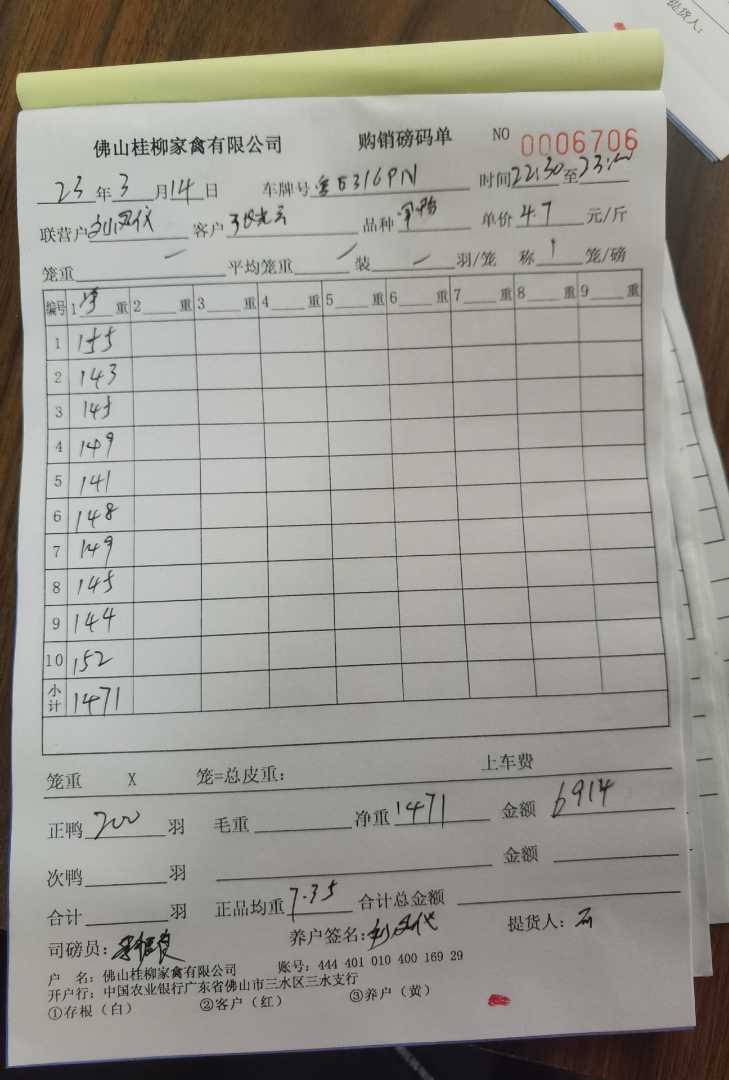 提货人:
佛山桂柳家禽有限公司 购销磅码单 NO 0006706
23年3月14日 车牌号 E6316PN 时间22:30至23:00
联营户 客户 品种 单价4.7元/斤
笼重 — 平均笼重 — 装 — 羽/笼 称 1 笼/磅
编号 1净重 2 重 3 重 4 重 5 重 6 重 7 重 8 重 9 重
1 155
2 143
3 145
4 149
5 141
6 148
7 149
8 145
9 144
10 152
小计 1471
笼重 X 笼=总皮重: 上车费
正鸭 200 羽 毛重 净重 1471 金额 6914
次鸭 羽 金额
合计 羽 正品均重 7.35 合计总金额
司磅员: 养户签名: 提货人: 石
户 名: 佛山桂柳家禽有限公司 账号: 444 401 010 400 169 29
开户行: 中国农业银行广东省佛山市三水区三水支行
①存根(白) ②客户(红) ③养户(黄)